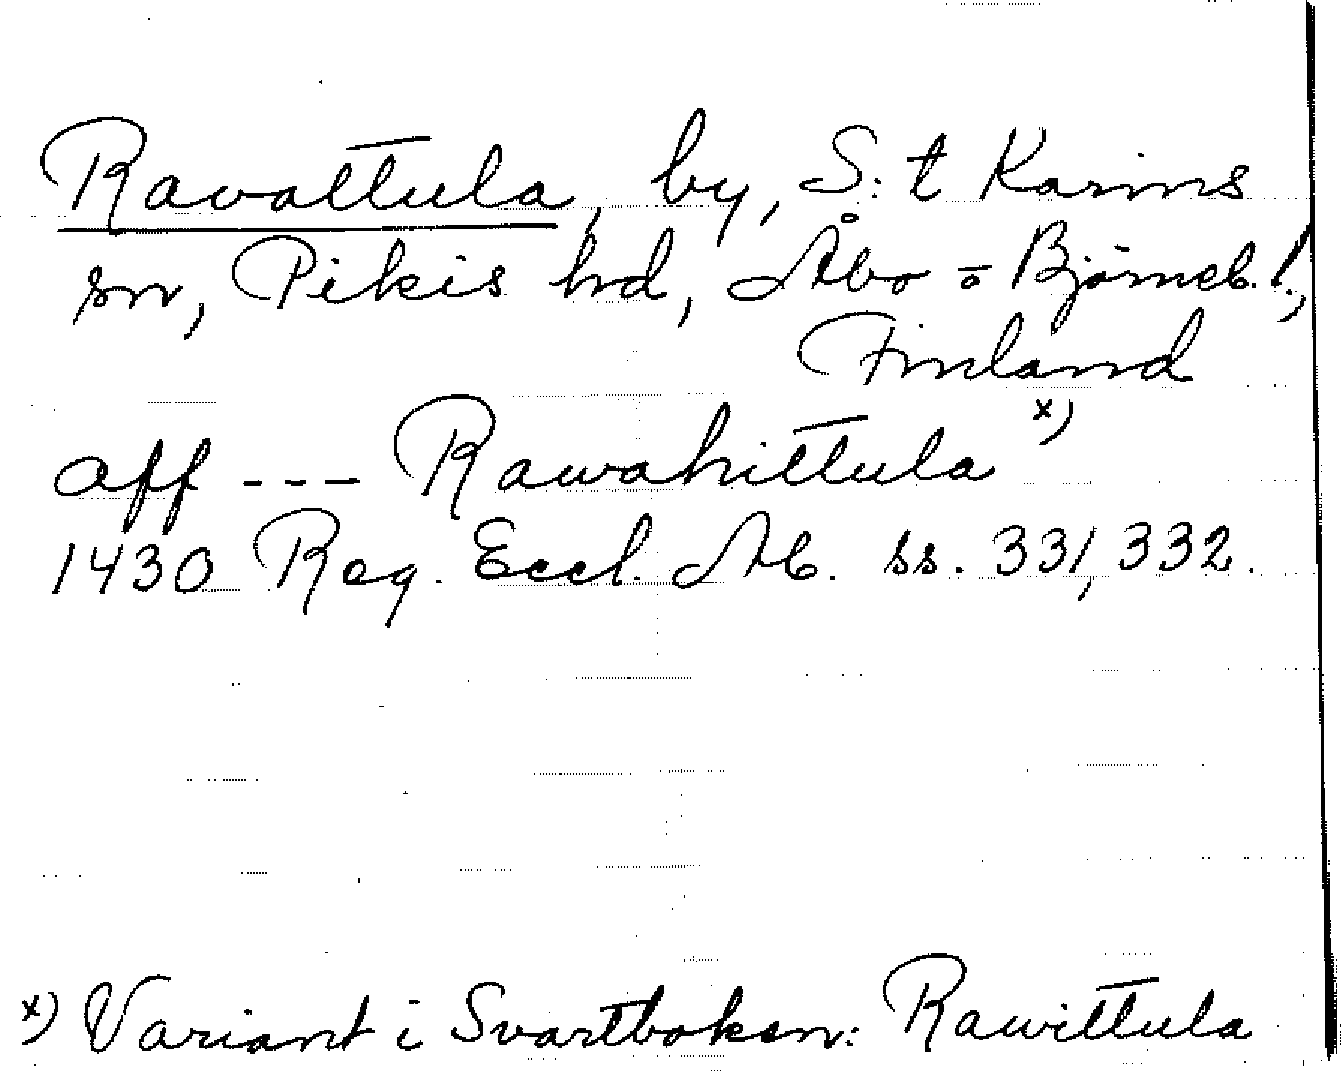 Ravattula, by, S:t Karins
sn, Pikis hd, Åbo-o Björneb. l.,
Finland
aff --- Rawahittula x)
1430 Reg. Eccl. Ab. ss. 331, 332.
x) Variant i Svartboken: Rawittula